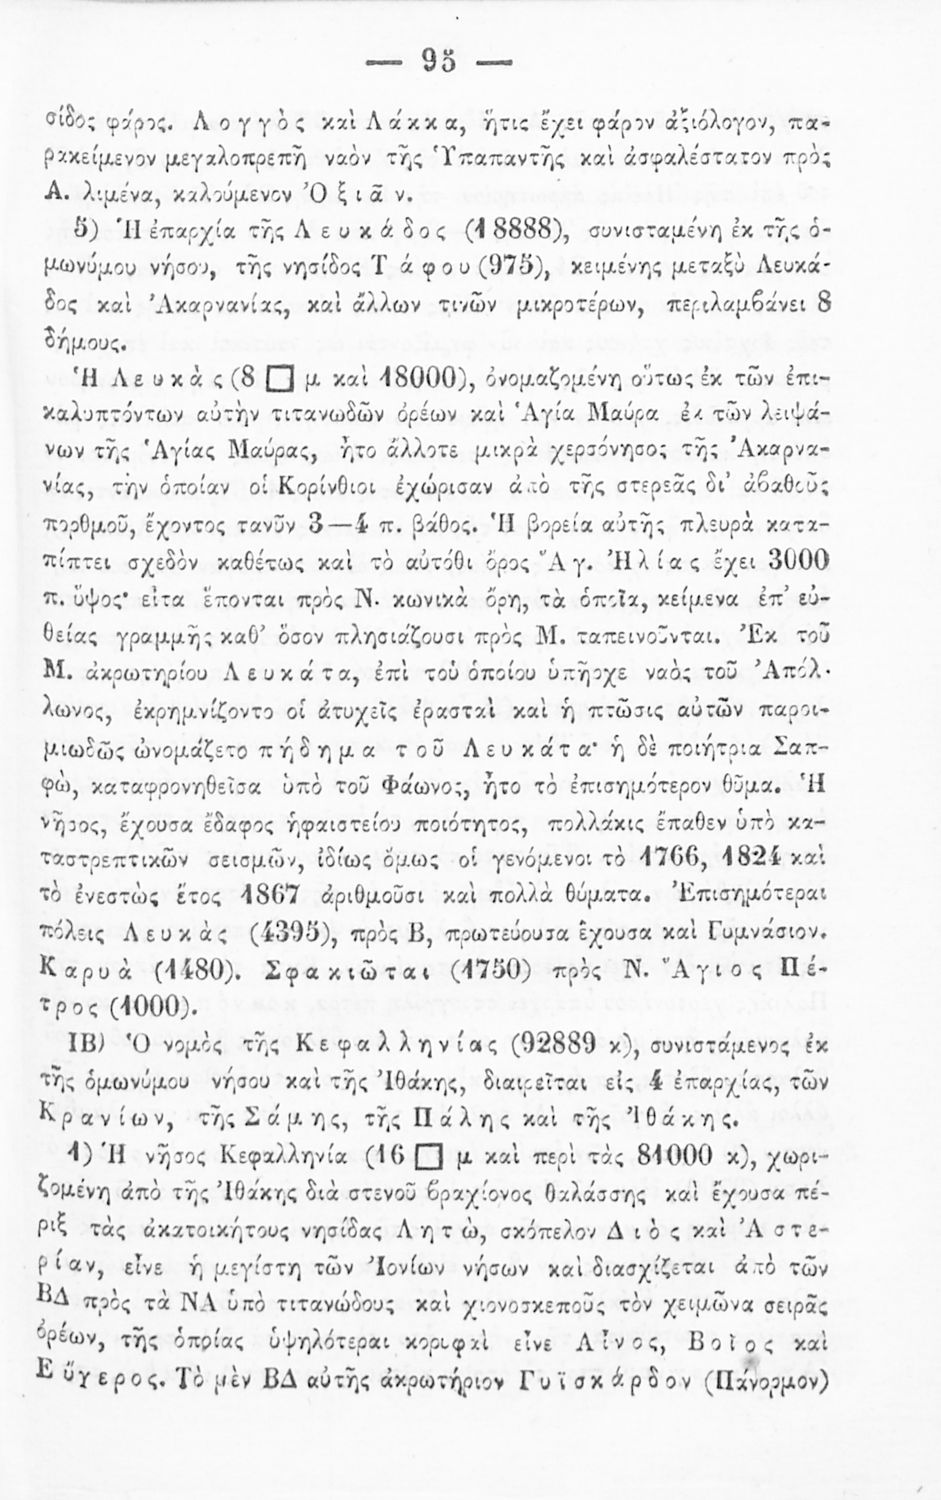 — 95 —
σίδος φάρος. Λογγὸς καὶ Λάκκα, ἥτις ἔχει φάρον ἀξιόλογον, πα-
ρακείμενον μεγαλοπρεπῆ ναὸν τῆς Ὑπαπαντῆς καὶ ἀσφαλέστατον πρὸς
Α. λιμένα, καλούμενον Ὀξιᾶν.
5) Ἡ ἐπαρχία τῆς Λευκάδος (18888), συνισταμένη ἐκ τῆς ὁ-
μωνύμου νήσου, τῆς νησίδος Τάφου (975), κειμένης μεταξὺ Λευκά-
δος καὶ Ἀκαρνανίας, καὶ ἄλλων τινῶν μικροτέρων, περιλαμβάνει 8
δήμους.
Ἡ Λευκὰς (8 □ μ καὶ 18000), ὀνομαζομένη οὕτως ἐκ τῶν ἐπι-
καλυπτόντων αὐτὴν τιτανωδῶν ὀρέων καὶ Ἁγία Μαύρα ἐκ τῶν λειψά-
νων τῆς Ἁγίας Μαύρας, ἦτο ἄλλοτε μικρὰ χερσόνησος τῆς Ἀκαρνα-
νίας, τὴν ὁποίαν οἱ Κορίνθιοι ἐχώρισαν ἀπὸ τῆς στερεᾶς δι' ἀβαθοῦς
πορθμοῦ, ἔχοντος τανῦν 3—4 π. βάθος. Ἡ βορεία αὐτῆς πλευρὰ κατα-
πίπτει σχεδὸν καθέτως καὶ τὸ αὐτόθι ὄρος Ἅγ. Ἠλίας ἔχει 3000
π. ὕψος· εἶτα ἕπονται πρὸς Ν. κωνικὰ ὄρη, τὰ ὁποῖα, κείμενα ἐπ' εὐ-
θείας γραμμῆς καθ' ὅσον πλησιάζουσι πρὸς Μ. ταπεινοῦνται. Ἐκ τοῦ
Μ. ἀκρωτηρίου Λευκάτα, ἐπὶ τοῦ ὁποίου ὑπῆρχε ναὸς τοῦ Ἀπόλ-
λωνος, ἐκρημνίζοντο οἱ ἀτυχεῖς ἐρασταὶ καὶ ἡ πτῶσις αὐτῶν παροι-
μιωδῶς ὠνομάζετο πήδημα τοῦ Λευκάτα· ἡ δὲ ποιήτρια Σαπ-
φὼ, καταφρονηθεῖσα ὑπὸ τοῦ Φάωνος, ἦτο τὸ ἐπισημότερον θῦμα. Ἡ
νῆσος, ἔχουσα ἔδαφος ἡφαιστείου ποιότητος, πολλάκις ἔπαθεν ὑπὸ κα-
ταστρεπτικῶν σεισμῶν, ἰδίως ὅμως οἱ γενόμενοι τὸ 1766, 1824 καὶ
τὸ ἐνεστὼς ἔτος 1867 ἀριθμοῦσι καὶ πολλὰ θύματα. Ἐπισημότεραι
πόλεις Λευκὰς (4395), πρὸς Β, πρωτεύουσα ἔχουσα καὶ Γυμνάσιον.
Καρυὰ (1480). Σφακιῶται (1750) πρὸς Ν. Ἅγιος Πέ-
τρος (1000).
ΙΒ) Ὁ νομὸς τῆς Κεφαλληνίας (92889 κ), συνιστάμενος ἐκ
τῆς ὁμωνύμου νήσου καὶ τῆς Ἰθάκης, διαιρεῖται εἰς 4 ἐπαρχίας, τῶν
Κρανίων, τῆς Σάμης, τῆς Πάλης καὶ τῆς Ἰθάκης.
1) Ἡ νῆσος Κεφαλληνία (16 □ μ καὶ περὶ τὰς 81000 κ), χωρι-
ζομένη ἀπὸ τῆς Ἰθάκης διὰ στενοῦ βραχίονος θαλάσσης καὶ ἔχουσα πέ-
ριξ τὰς ἀκατοικήτους νησίδας Λητὼ, σκόπελον Διὸς καὶ Ἀστε-
ρίαν, εἶνε ἡ μεγίστη τῶν Ἰονίων νήσων καὶ διασχίζεται ἀπὸ τῶν
ΒΔ πρὸς τὰ ΝΑ ὑπὸ τιτανώδους καὶ χιονοσκεποῦς τὸν χειμῶνα σειρᾶς
ὀρέων, τῆς ὁποίας ὑψηλότεραι κορυφαὶ εἶνε Αἶνος, Βοῖος καὶ
Εὔγερος. Τὸ μὲν ΒΔ αὐτῆς ἀκρωτήριον Γυϊσκάρδον (Πάνορμον)